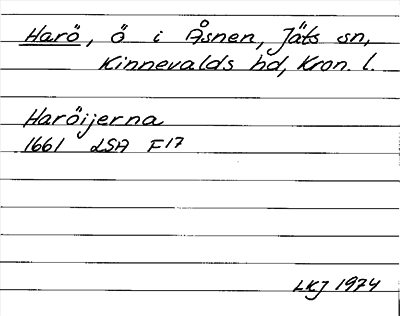 Harö, ö i Åsnen, Jäts sn,
Kinnevalds hd, Kron. l.
Haröijerna
1661 LSA F17
LKJ 1974